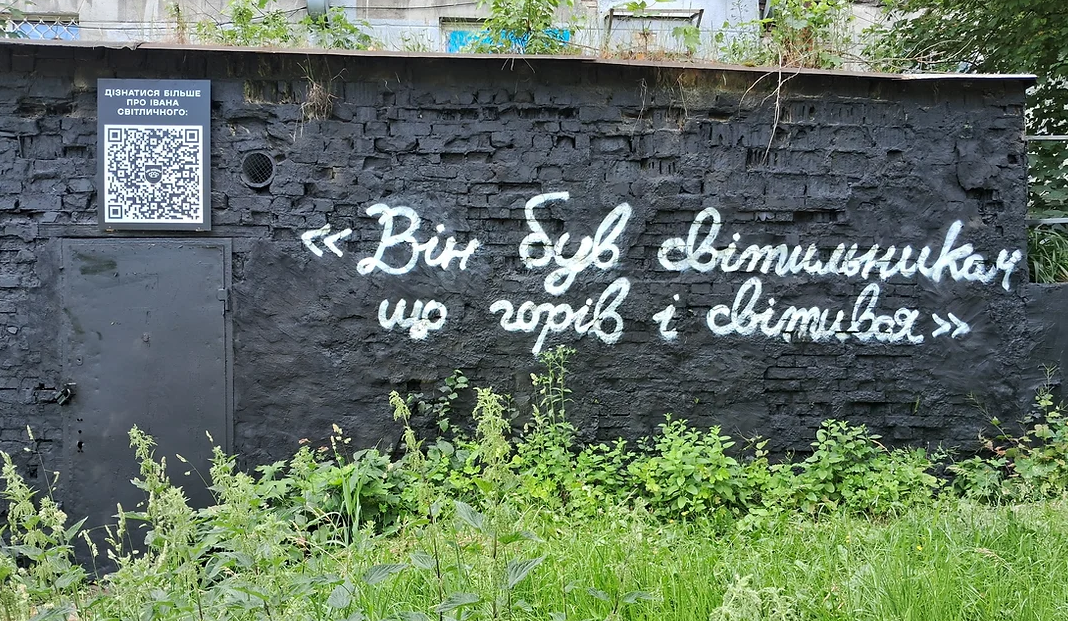 ДІЗНАТИСЯ БІЛЬШЕ
ПРО ІВАНА
СВІТЛИЧНОГО:
«Він був світильником
що горів і світився»